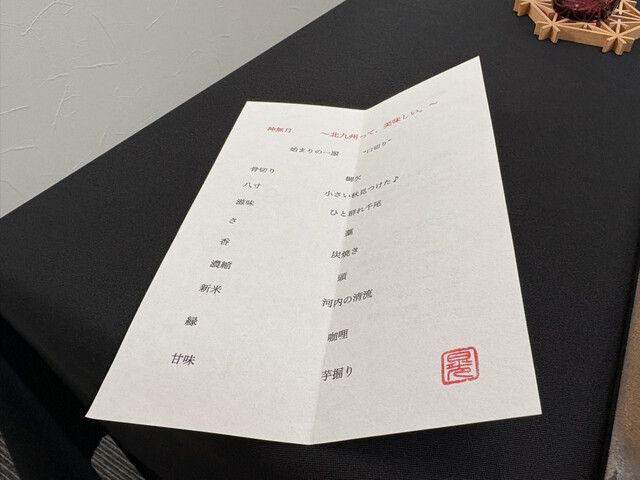 神無月 ～北九州って、美味しい。～
始まりの一滴 "口切り"
骨切り 御欠
八寸 小さい秋見つけた♪
滋味 ひと群れ千尾
さ 藁
香 炭焼き
濃縮 頭
新米 河内の清流
縁 咖哩
甘味 芋掘り